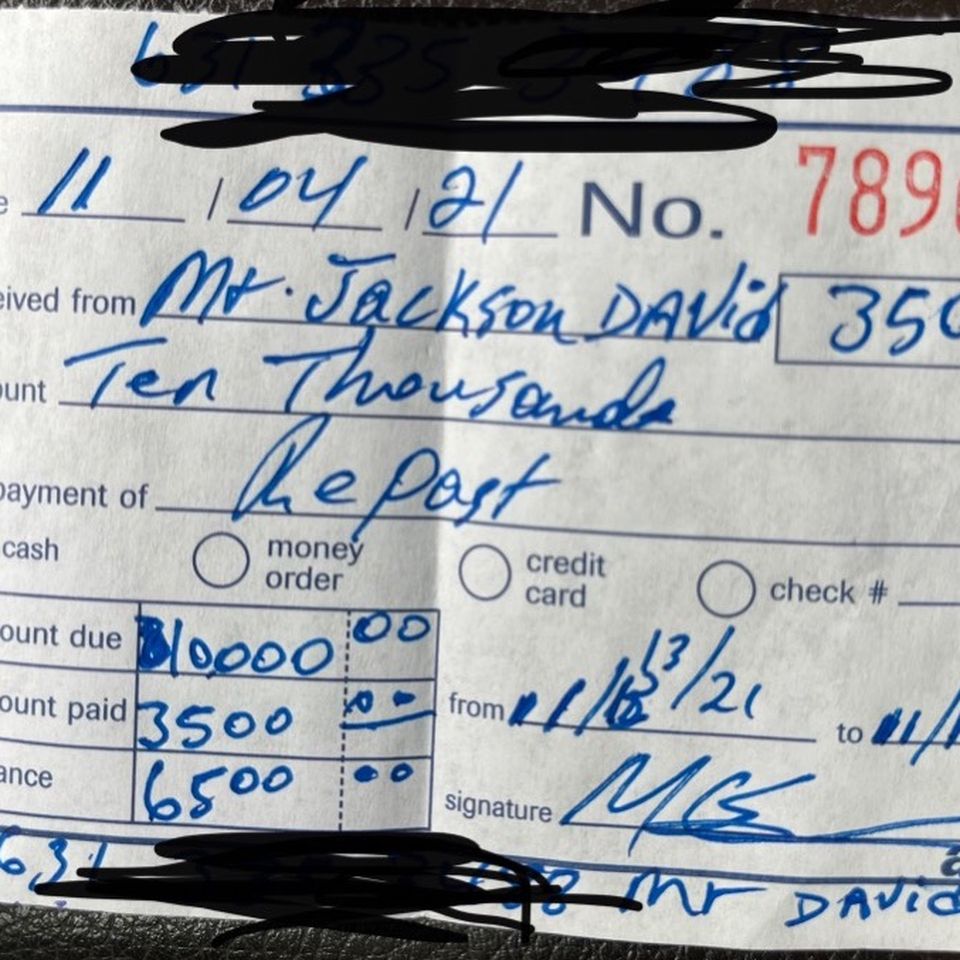 631
e 11 / 04 / 21 No. 789
eived from Mr. Jackson DAVid 350
ount Ten Thousands
payment of Repast
cash money order credit card check #
ount due 10,000 00
ount paid 3500 00 from 11/13/21 to 11/
ance 6500 00
signature
631 Mr DAVid